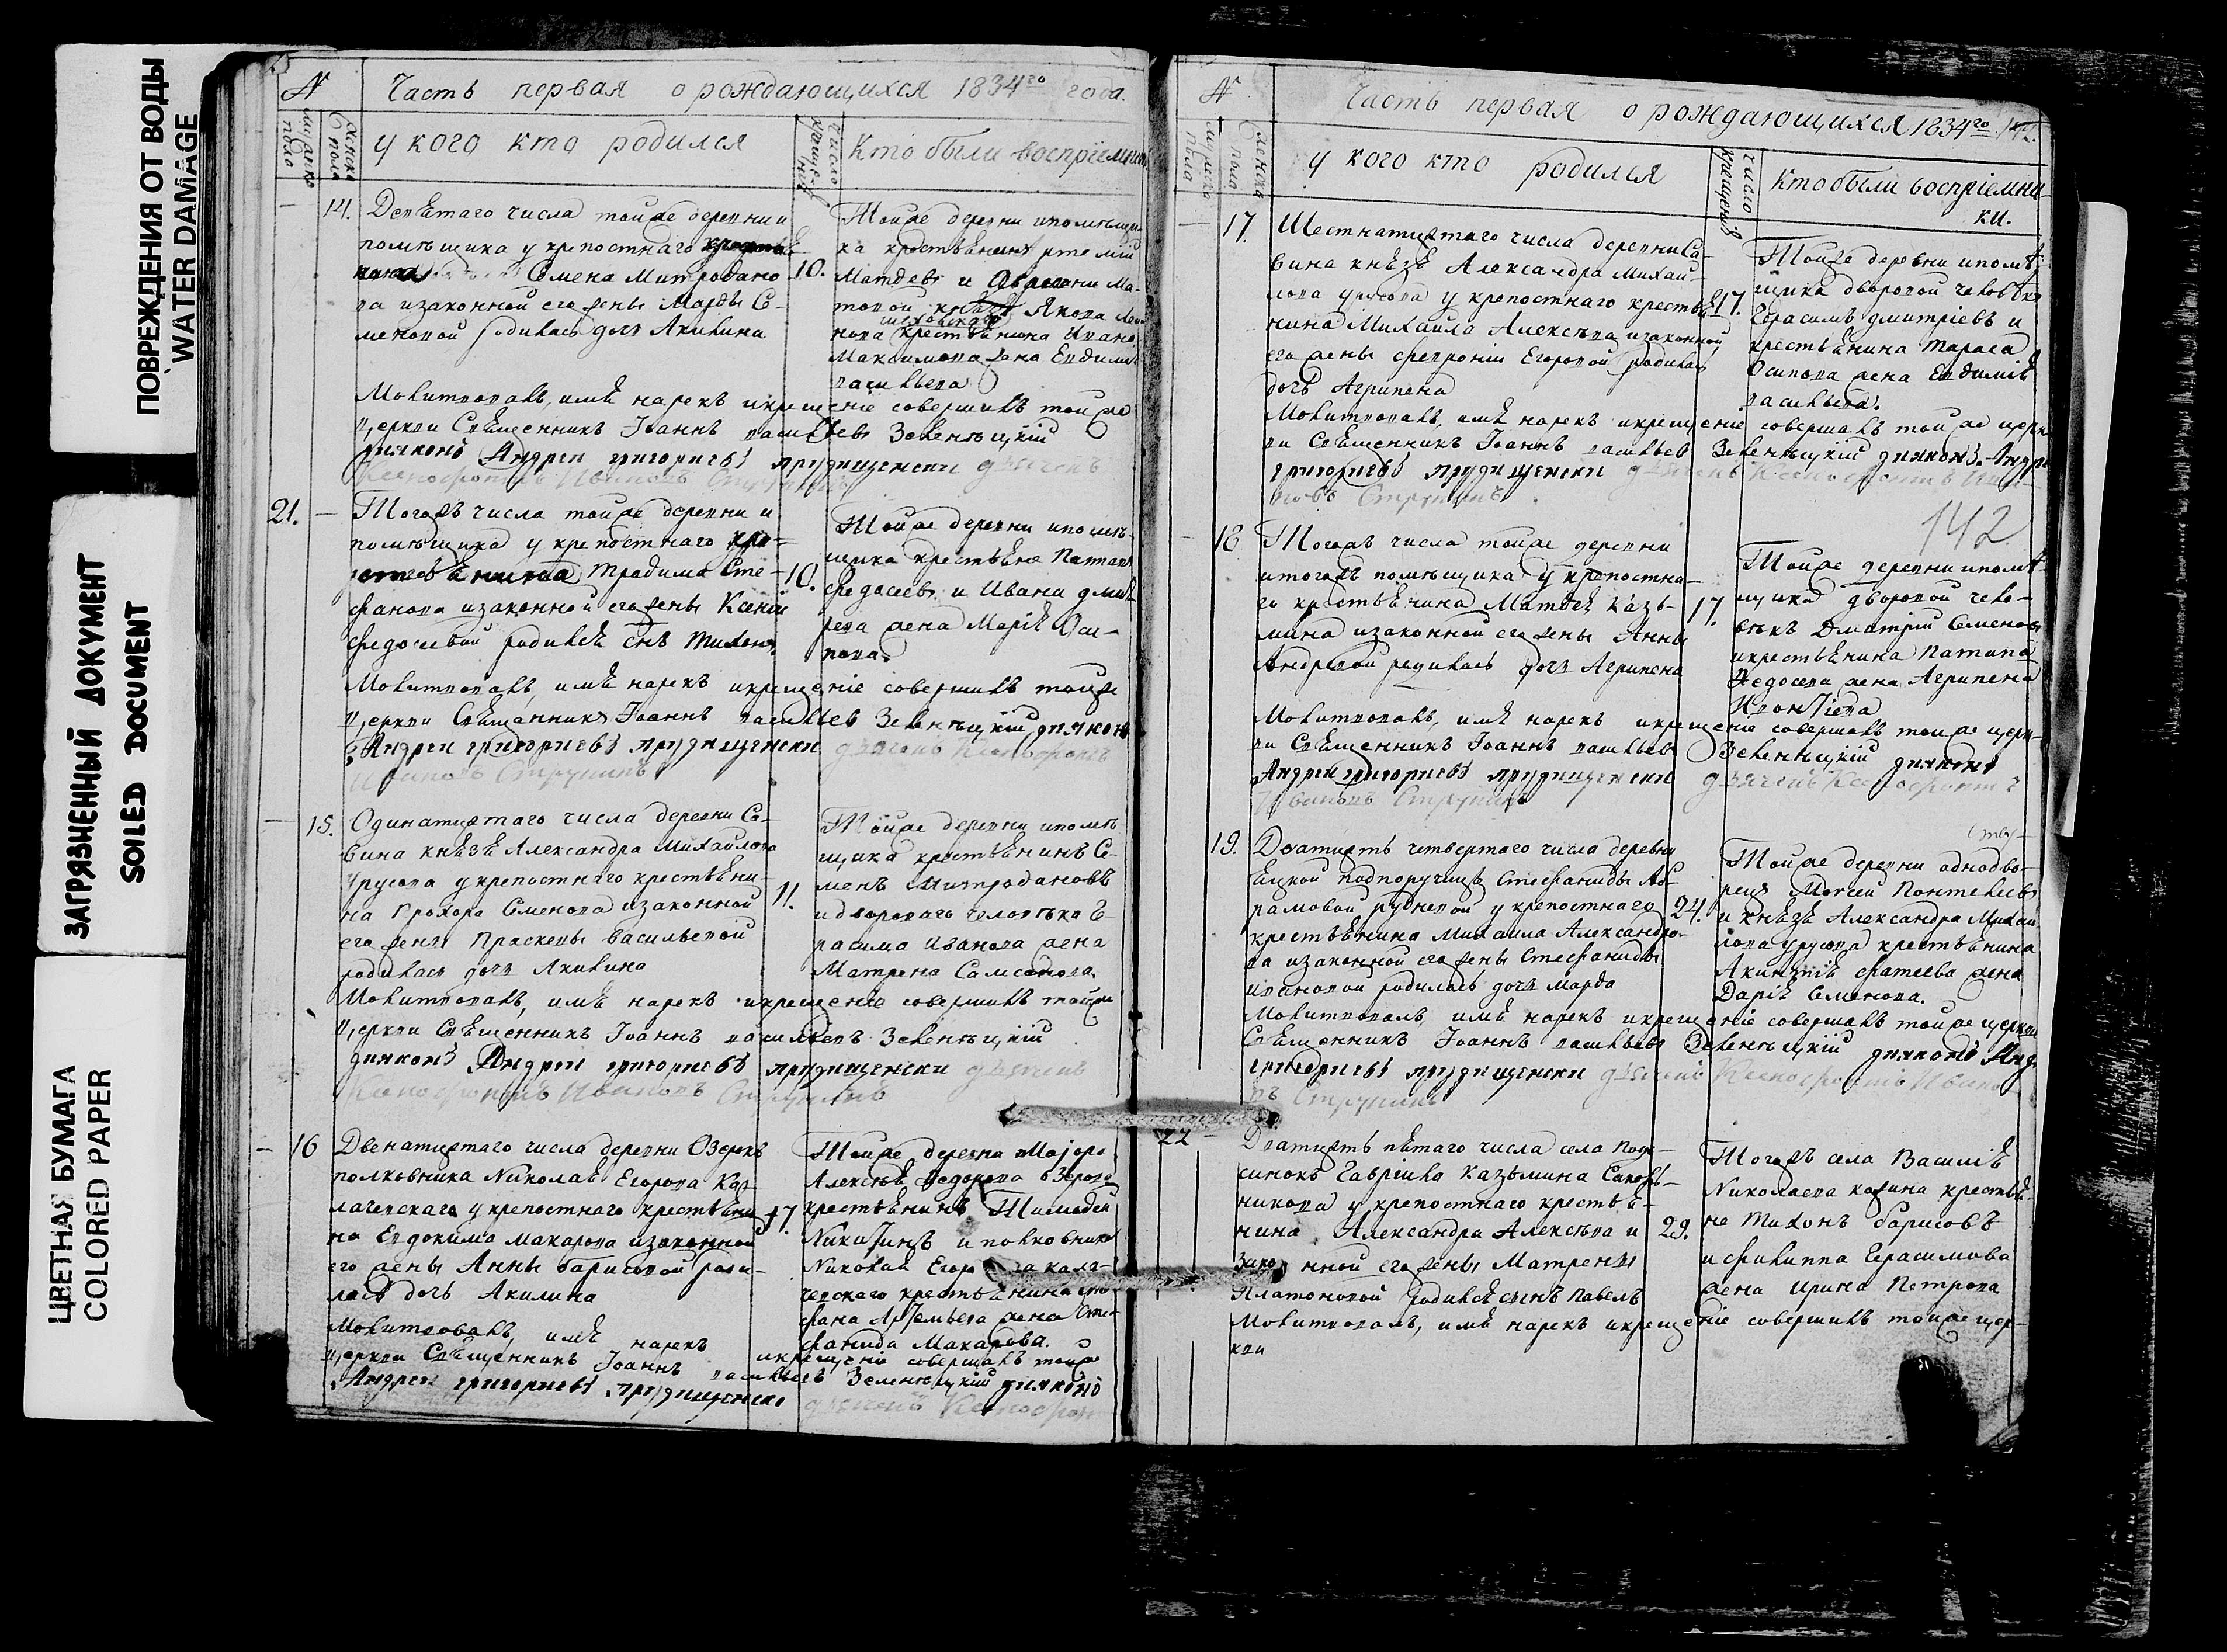 ПОВРЕЖДЕНИЯ ОТ ВОДЫ
WATER DAMAGE
ЗАГРЯЗНЕННЫЙ ДОКУМЕНТ
SOILED DOCUMENT
ЦВЕТНАЯ БУМАГА
COLORED PAPER
№ Часть первая о рождающихся 1834го года.
мужеска пола
женска пола
у кого кто родился
число крещения
Кто были воспріемни
14. Девятаго числа тойже деревни и
помѣщика у крепостнаго
Семена Митрофано
ва изаконной его жены Марфы Се-
меновой родилась дочь Акилина
10.
Тойже деревни ипомѣщи
ка крестьянинъ
Матвевъ и
Якова
крестьянина Ивана
Максимова жена Евдокия
васильева
Молитвовалъ, имя нарекъ икрещеніе совершилъ тойже
церкви Священникъ Іоаннъ васильевъ Зеленецкій
диаконъ Андреи григориевъ прудищенски дьячекъ
Ксенофонтъ Ивановъ Струнинъ
21. Тогожъ числа тойже деревни и
помѣщика у крепостнаго кре-
стьянина Трафима Сте-
фанова изаконной его жены Ксеніи
федосевой родился снъ Тихонъ
10.
Тойже деревни ипомѣ-
щика крестьяне Патапъ
федосеевъ и Ивана дмит
рева жена Марія Оси-
пова.
Молитвовалъ, имя нарекъ икрещеніе совершилъ тойже
церкви Священникъ Іоаннъ васильев Зеленецкій диаконъ
Андреи григориевъ прудищенски дьячекъ Ксенофонтъ
Ивановъ Струнинъ
15. Одинатцетаго числа деревни Са-
вина князя Александра Михайлова
Урусова у крепостнаго крестьяни-
на Прохора Семенова изаконной
его жены Праскевы васильевой
родилась дочь Акилина
11.
Тойже деревни ипомѣ
щика крестьянинъ Се-
менъ Митрофановъ
идвороваго человѣка Ге-
расима Иванова жена
Матрена Самсонова
Молитвовалъ, имя нарекъ икрещеніе совершилъ тойже
церкви Священникъ Іоаннъ васильевъ Зеленецкій
диаконъ Андреи григориевъ прудищенски дьячекъ
Ксенофонтъ Ивановъ Струнинъ
16 Двенатцетаго числа деревни Озерокъ
полковника Николая Егорова Кал-
лачевскаго у крепостнаго крестьяни
на Евдокима Макарова изаконной
его жены Анны барисовой роди-
лась дочь Акилина
17.
Тойже деревни Маіора
Алексѣя Федорова Озерова
крестьянинъ Тимофей
Никитинъ и полковника
Николая Егорова кала-
чевскаго крестьянина Сте
фана Артемьева жена Сте-
фанида Макарова.
Молитвовалъ, имя нарекъ икрещеніе совершилъ тойже
церкви Священникъ Іоаннъ васильевъ Зеленецкій диаконъ
Андреи григориевъ прудищенски дьячекъ Ксенофонт
№ Часть первая о рождающихся 1834го 142.
мужеска пола
женска пола
у кого кто родился
число крещения
Кто были воспріемни-
ки.
17. Шестнатцетаго числа деревни Са-
вина князя Александра Михаи-
лова урусова у крепостнаго крестья
нина Михаила Алексѣва изаконной
его жены февроніи Егоровой родилась
дочь Агрипена
17.
Тойже деревни ипомѣ-
щика дворовой человѣкъ
Герасимъ дмитріевъ и
крестьянина Тараса
Осипова жена Евдокія
васильева.
Молитвовалъ, имя нарекъ икрещеніе совершалъ тойже церк
ви Священникъ Іоаннъ васильев Зеленецкій диаконъ Андре
григориевъ прудищенски дьячекъ Ксенофонтъ Ива-
новъ Струнинъ.
142
18 Тогожъ числа тойже деревни
итогожъ помѣщика у крепостна-
го крестьянина Матвея Казь-
мина изаконной его жены Анны
Андревой родилась дочь Агрипена
17.
Тойже деревни ипомѣ-
щика дворовой чело-
вѣкъ Дмитрій Семеновъ
икрестьянина Патапа
Федосева жена Агрипена
Молитвовалъ, имя нарекъ икрещеніе совершалъ тойже церк-
ви Священникъ Іоаннъ васильевъ Зеленецкій диаконъ
Андреи григориевъ прудищенски дьячекъ Ксенофонтъ
Ивановъ Струнинъ
19. Дватцеть четвертаго числа деревни
подпоручицы Стефаниды Аб-
рамовой рудневой у крепостнаго
крестьянина Михаила Александро-
ва изаконной его жены Стефаниды
Ивановой родилась дочь марфа
24.
Тойже деревни аднодво-
рецъ Моисей Понтелевъ
и князя Александра Михаи
лова урусова крестьянина
фатеева жена
Дарія Семенова.
Молитвовалъ, имя нарекъ икрещеніе совершалъ тойже церкви
Священникъ Іоаннъ васильевъ Зеленецкій диаконъ Анд-
григориевъ прудищенски дьячекъ Ксенофонтъ Ивано
въ Струнинъ
22 Дватцеть пятаго числа села Поде-
синокъ Гавріила Казьмина
никова у крепостнаго крестья-
нина Александра Алексѣва и
законной его жены Матрены
Платоновой родился сынъ Павелъ
29.
Тогожъ села Василія
Николаева крестья-
не Тихонъ барисовъ
ифилиппа Герасимова
жена Ирина Петрова
Молитвовалъ, имя нарекъ икрещеніе совершилъ тойже цер-
кви